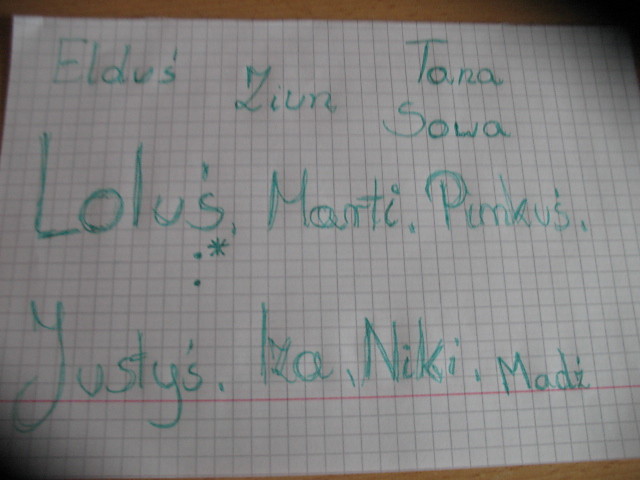 Elduś Ziun Tana
Sowa
Loluś, Marti, Punkuś,
:*
Justyś. Iza, Niki, Madź